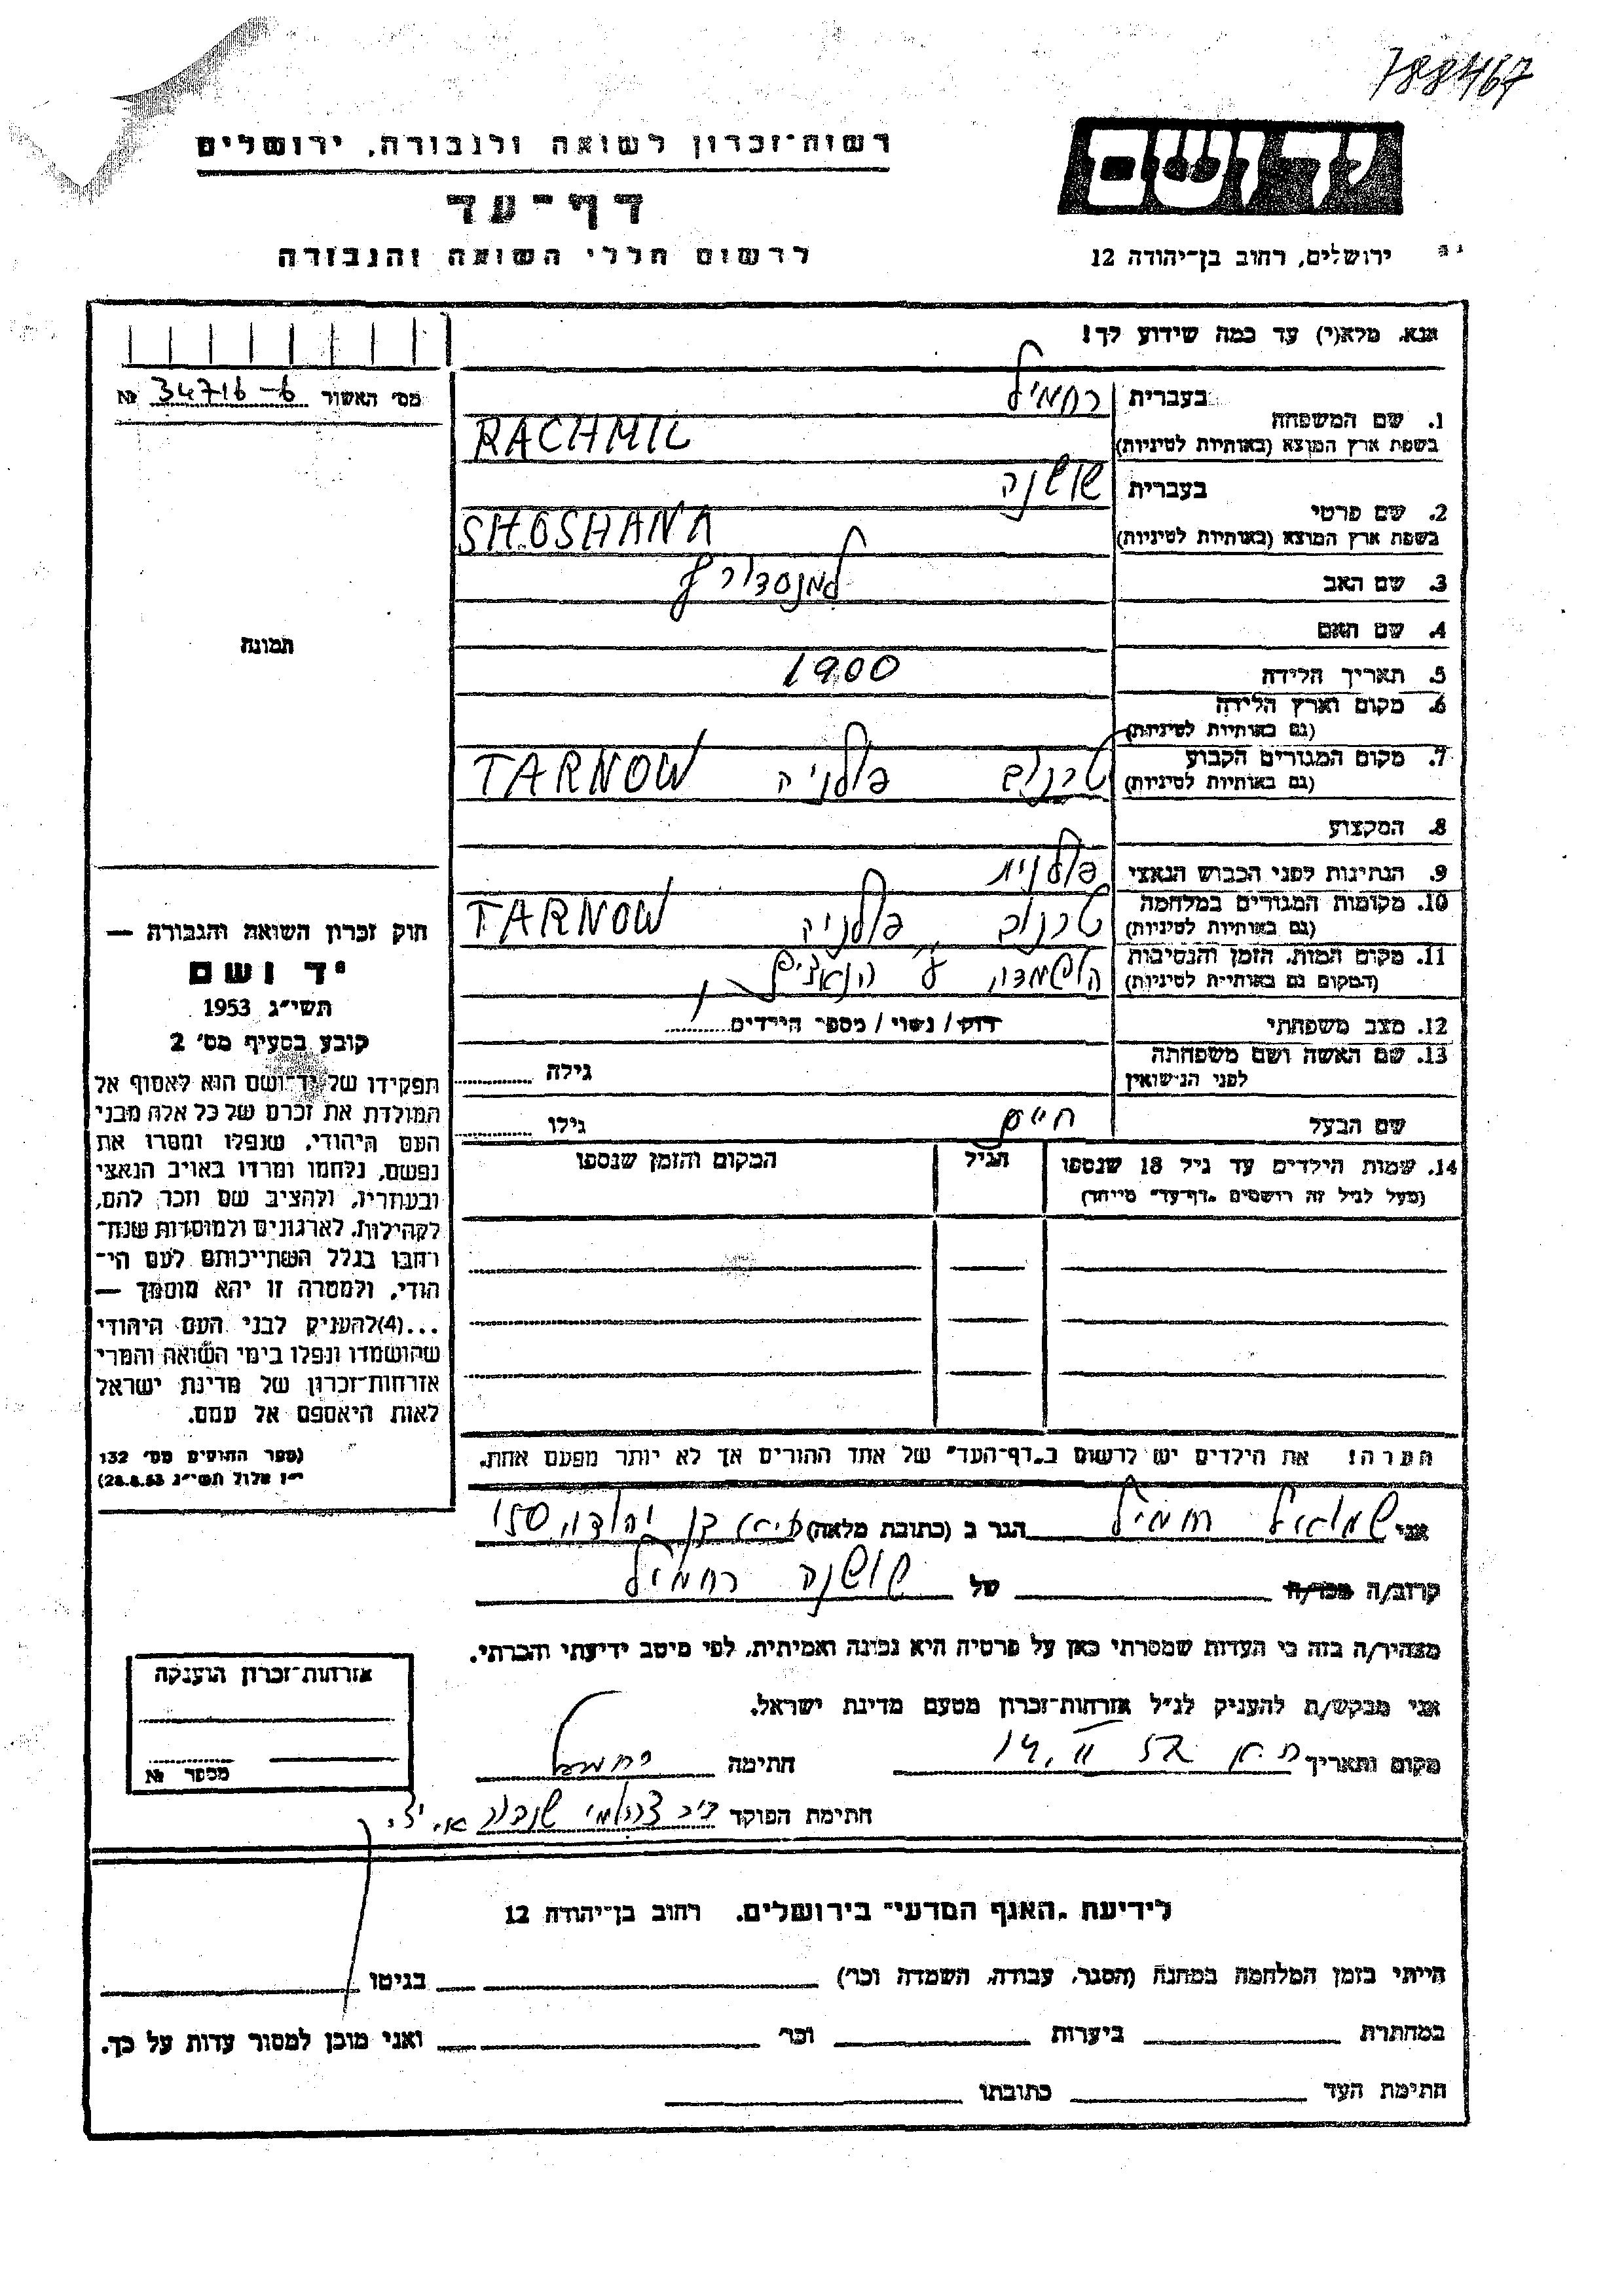 788467
יד ושם
רשות־זכרון לשואה ולגבורה, ירושלים
דף־עד
לרשום חללי השואה והגבורה
ירושלים, רחוב בן־יהודה 12
נא. מלא(י) עד כמה שידוע לך!
מס' האשור 34716-6 №
1. שם המשפחה
בעברית רחמיל
בשפת ארץ המוצא (באותיות לטיניות) RACHMIL
2. שם פרטי
בעברית שושנה
בשפת ארץ המוצא (באותיות לטיניות) SHOSHANA
3. שם האב למנסדורף
4. שם האם
5. תאריך הלידה 1900
6. מקום וארץ הלידה
(גם באותיות לטיניות)
7. מקום המגורים הקבוע טרנוב פולניה TARNOW
(גם באותיות לטיניות)
8. המקצוע
9. הנתינות לפני הכבוש הנאצי פולנית
10. מקומות המגורים במלחמה טרנוב פולניה TARNOW
(גם באותיות לטיניות)
11. מקום המות, הזמן והנסיבות הושמדה ע״י הנאצים
(המקום גם באותיות לטיניות)
12. מצב משפחתי רווק / נשוי / מספר הילדים
13. שם האשה ושם משפחתה
לפני הנישואין
גילה
שם הבעל חיים גילו
14. שמות הילדים עד גיל 18 שנספו הגיל המקום והזמן שנספו
(מעל לגיל זה רושמים „דף־עד" מיוחד)
הערה: את הילדים יש לרשום ב„דף־העד" של אחד ההורים אך לא יותר מפעם אחת.
תמונה
חוק זכרון השואה והגבורה —
יד ושם
תשי״ג 1953
קובע בסעיף מס' 2
תפקידו של יד־ושם הוא לאסוף אל
המולדת את זכרם של כל אלה מבני
העם היהודי, שנפלו ומסרו את
נפשם, נלחמו ומרדו באויב הנאצי
ובעוזריו, ולהציב שם וזכר להם,
לקהילות, לארגונים ולמוסדות שנח־
רבו בגלל השתייכותם לעם הי־
הודי, ולמטרה זו יהא מוסמך —
...(4)להעניק לבני העם היהודי
שהושמדו ונפלו בימי השואה והמרי
אזרחות־זכרון של מדינת ישראל
לאות היאספם אל עמם.
(ספר החוקים מס' 132
י״ז אלול תשי״ג 28.8.53)
אני שמואל רחמיל הגר ב (כתובת מלאה) ת״א בן יהודה 150
קרוב/ה מכר/ה של שושנה רחמיל
מצהיר/ה בזה כי העדות שמסרתי כאן על פרטיה היא נכונה ואמיתית, לפי מיטב ידיעתי והכרתי.
אני מבקש/ת להעניק לנ״ל אזרחות־זכרון מטעם מדינת ישראל.
מקום ותאריך ת.א 14. II 57 חתימה רחמיל
חתימת הפוקד
אזרחות־זכרון הוענקה
מספר №
לידיעת „האגף המדעי" בירושלים, רחוב בן־יהודה 12
הייתי בזמן המלחמה במחנה (הסגר, עבודה, השמדה וכו') בגיטו
במחתרת ביערות וכו' ואני מוכן למסור עדות על כך.
חתימת העד כתובתו